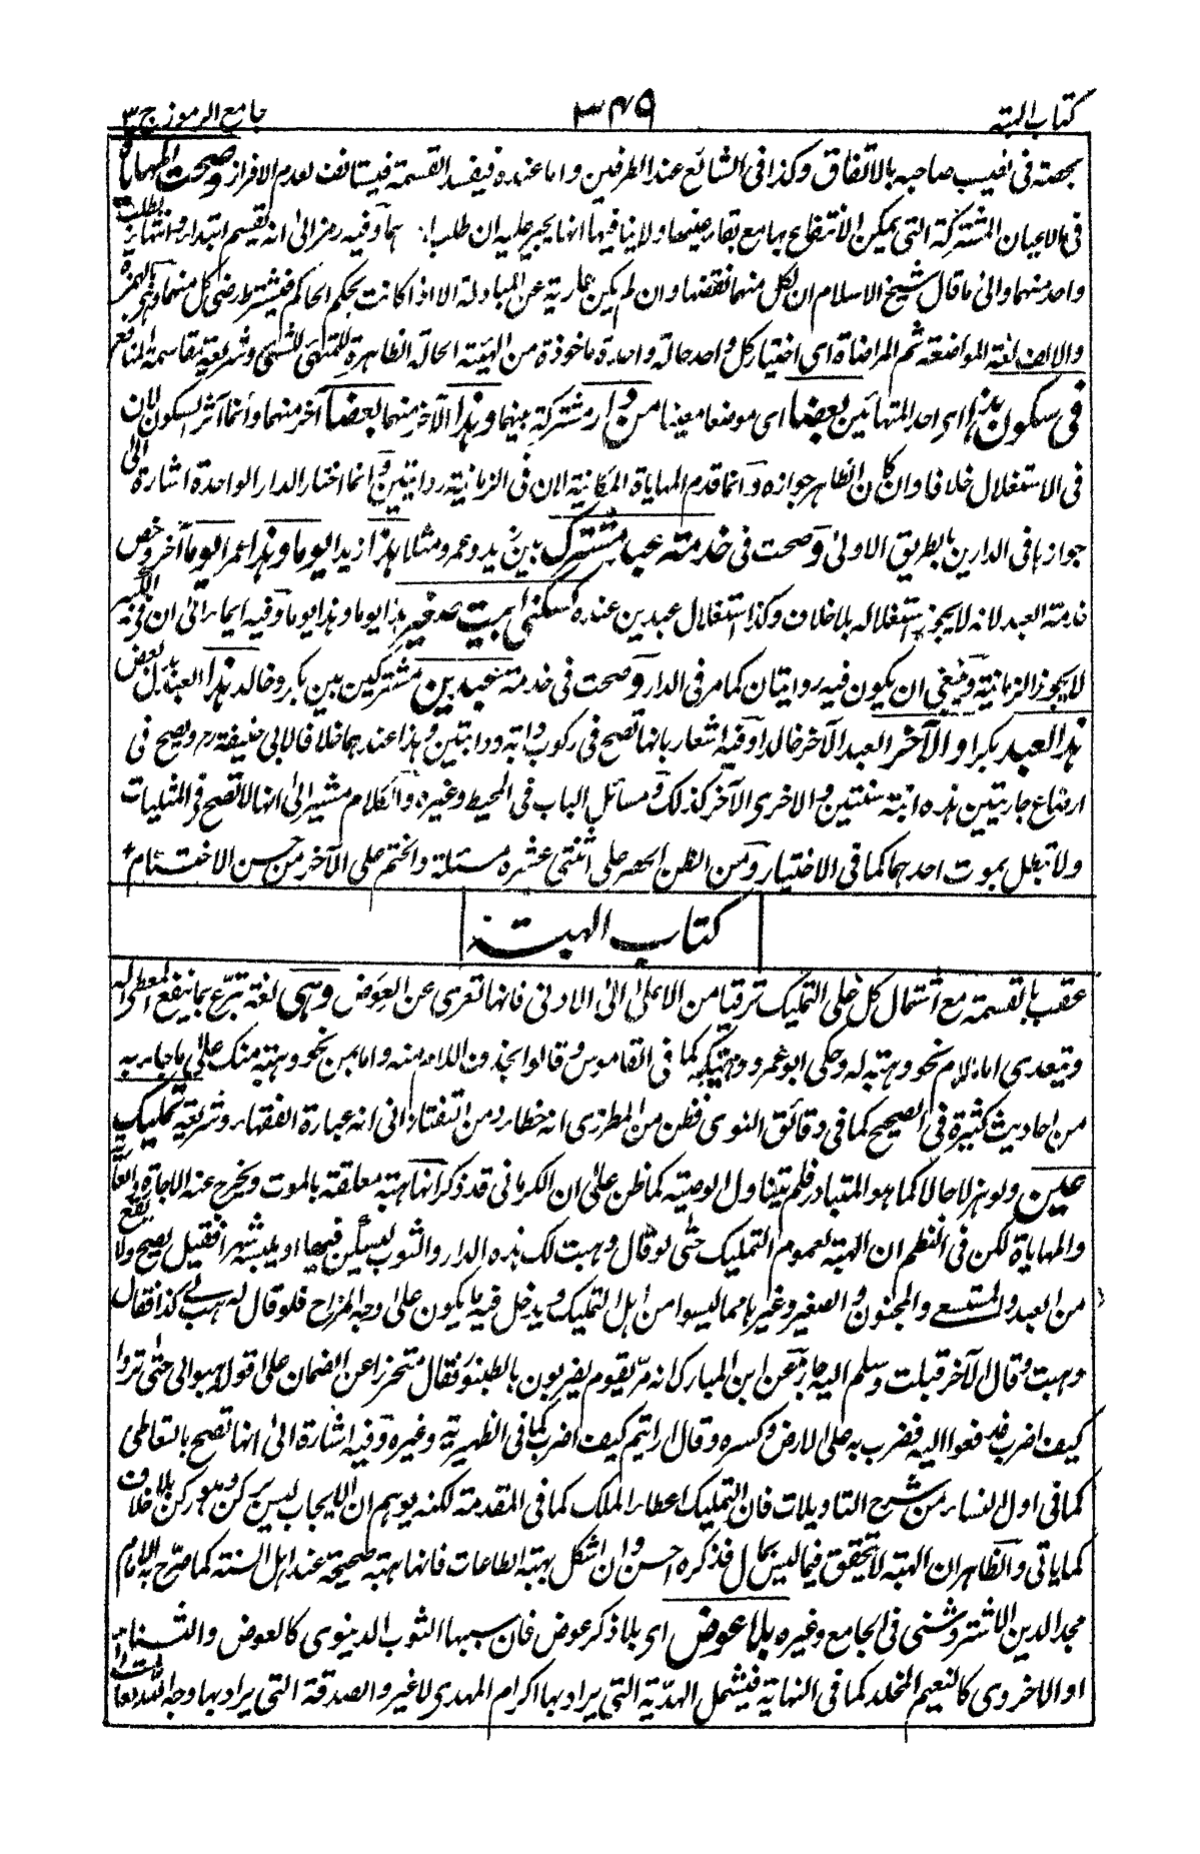 كتاب الهبة ٣٤٩ جامع الرموز ج ٣
بحصته فى نصيب صاحبه بالاتفاق وكذا فى الشائع عند الطرفين واما عنده فيفسد القسمة فيستانف لعدم الافراز وصحت المهاياة
فى الاعيان المشتركة التى يمكن الانتفاع بها مع بقاء عينها ولا ينافيها انها يجبر عليه ان طلبا وفيه رمز الى انه تقسيم ابتداء وانتهاء بطلب
واحد منهما والى ما قال شيخ الاسلام ان لكل منهما نقضها وان لم يكن عارية عن المبادلة الا اذا كانت بحكم الحاكم فيشترط رضى كل منهما وهى بالهمزة
والالف لغة المواضعة ثم المراضاة اى اختيار كل واحد حالة واحدة ماخوذة من الهيئة الحالة الظاهرة للمتهيئ للشئ وشريعة مقاسمة المنافع
فى سكون هذا اى احد المتهائين بعضا اى موضعا معينا من دار مشتركة بينهما وهذا الآخر منهما بعضا آخر منهما وانما آثر السكون لان
فى الاستغلال خلافا وان كان الظاهر جوازه وانما قدم المهاياة المكانية لان فى الزمانية روايتين وانما اختار الدار الواحدة اشارة الى
جوازها فى الدارين بالطريق الاولى وصحت فى خدمة عبد مشترك بين زيد وعمرو مثلا هذا زيد ايوما وهذا عمرا يوما آخر وخص
خدمة العبد لانه لا يجوز استغلاله بلا خلاف وكذا استغلال عبدين عنده كسكنى بيت صغير هذا يوما وهذا يوما وفيه ايماء الى ان فى الكبير
لا يجوز الزمانية وينبغى ان يكون فيه روايتان كما مر فى الدار وصحت فى خدمة عبدين مشتركين بين بكر وخالد هذا العبد
هذا العبد بكرا والآخر العبد الآخر خالدا وفيه اشعار بانها تصح فى ركوب دابة ودابتين وهذا عندهما خلافا لابى حنيفة رح ويصح فى
ارضاع جاريتين هذه ابنة سنتين والاخرى الآخر كذلك ومسائل الباب فى المحيط وغيره والكلام مشير الى انها لا تصح فى المثليات
ولا تبطل بموت احدهما كما فى الاختيار ومن الظن الحصر على اثنتى عشرة مسئلة والختم على الآخر من حسن الاختتام
كتاب الهبة
عقب بالقسمة مع اشتمال كل على التمليك ترقيا من الاعلى الى الادنى فانها تعرى عن العوض وهى لغة تبرع بما ينفع المعطى له
ويتعدى اما باللام نحو وهبته له وحكى ابو عمرو وهبتكه كما فى القاموس وقالوا بحذف اللام منه واما بمن نحو وهبته منك على ما جاء به
من احاديث كثيرة فى الصحيح كما فى دقائق النووى فظن من المطرزى انه خطاء ومن التفتازانى انه عبارة الفقهاء وشريعة تمليك
عين ولو هزلا حالا كما هو المتبادر فلم يتناول الوصية كما ظن على ان الكرمانى قد ذكر انها هبة معلقة بالموت ويخرج عنه الاجارة والعارية
والمهاياة لكن فى النظم ان الهبة لعموم التمليك حتى لو قال وهبت لك هذه الدار والثوب ليسكن فيها او يلبسه شهرا فقبل يصح ولا يقع
من العبد والمستسعى والمجنون والصغير وغيرها مما ليسوا من اهل التمليك ويدخل فيه ما يكون على وجه المزاح فلو قال له هب لى كذا فقال
وهبت وقال الآخر قبلت وسلم اليه جاز عن ابن المبارك انه مر بقوم يضربون بالطنبور فقال متحرزا عن الضمان على قولهما هبوا لى حتى تروا
كيف اضرب فدفعوا اليه فضرب به على الارض وكسره وقال ارأيتم كيف اضرب كما فى الظهيرية وغيره وفيه اشارة الى انها تصح بالتعاطى
كما فى اول النساء من شرح التاويلات فان التمليك اعطاء الملك كما فى المقدمة لكنه يوهم ان الايجاب ليس بركن وهو ركن بلا خلاف
كما ياتى والظاهر ان الهبة لا تتحقق فيما ليس بمال فذكره احسن وان اشكل بهبة الطاعات فانها هبة صحيحة عند اهل السنة كما صرح به الامام
مجد الدين الاشتروشنى فى الجامع وغيره بلا عوض اى بلا ذكر عوض فان سببها الثوب الدنيوى كالعوض والثناء
او الاخروى كالنعيم المخلد كما فى النهاية فيشمل الهدية التى يراد بها اكرام المهدى لا غير والصدقة التى يراد بها وجه الله تعالى